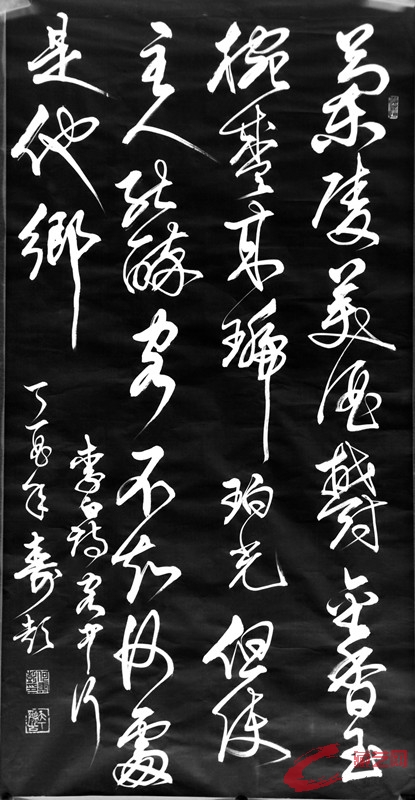 蘭陵美酒鬱金香玉
椀盛來琥珀光但使
主人能醉客不知何處
是他鄉
李白詩客中行
丁酉年壽